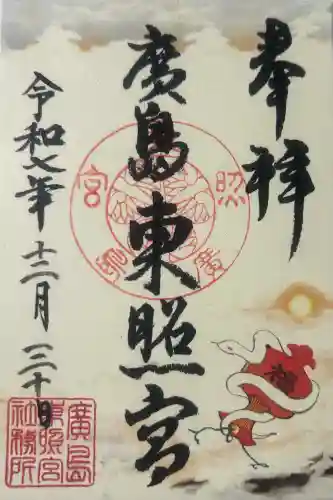 奉拝
廣島東照宮
令和七年十二月三十日
照
宮
廣島
東照宮
社務所